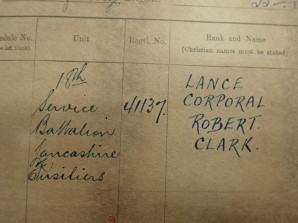 22
edule No.
Unit
Regtl. No.
Rank and Name
(Christian names must be stated)
18th
Service
Battalion
Lancashire
Fusiliers
41137.
LANCE
CORPORAL
ROBERT.
CLARK.